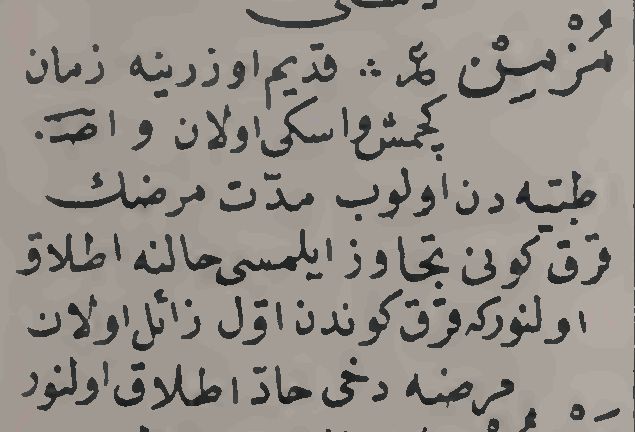 مُزْمِنْ عر ∴ قديم اوزرينه زمان
كچمش واسكى اولان و اصـ.
طبيه دن اولوب مدّت مرضك
قرق كونى تجاوز ايلمسى حالنه اطلاق
اولنوركه قرق كوندن اوّل زائل اولان
مرضه دخى حادّ اطلاق اولنور